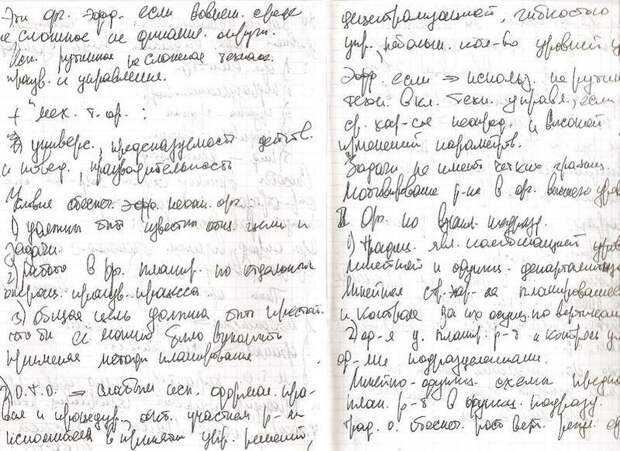 Эти ор. эфф. если во внеш. среде
не сложное не динамич. окруж.
Исп. рутинное не сложная технол.
произв. и управления.
+ "мех. т. ор. :
универс., предсказуемость действ.
и повед., производительность
Условия обеспеч. эфф. механ. орг.:
1) должны быть известны общ. цели и
задачи.
2) работа в ор. планир. по отдельным
операц. произв. процесса.
3) общая цель должна быть простой
чтобы её можно было выполнить
применяя методы планирования
О.т.о. => слабым исп. формал. пра-
вил и процедур, участием р-
исполнителей в принятии упр. решений,
децентрализацией, гибкостью
упр., небольш. кол-во уровней у
Эфф. если => использ. не рутин
техн. вкл. техн. управл., если
ср. хар-ся неопред. и высокой
изменений параметров.
Задачи не имеют четких границ.
Мотивирование р-ка в ор. высшего уров
II Ор. по взаим. подразд.
1) традиц. явл. комбинацией уров
линейной и функц. департаментиз
Линейная стр. за планирование
и контроль за их осущ. по вертикали
планир. р-т и контроль
подразделениями.
Линейно-функц. схемы предпо
план. р-т в функц. подразд.
Трад. о. обеспеч. рост верт.